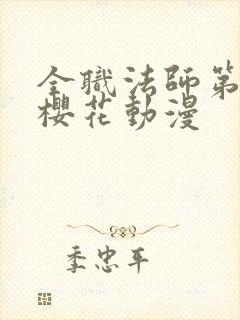 全職法師第
櫻花動漫
季忠平